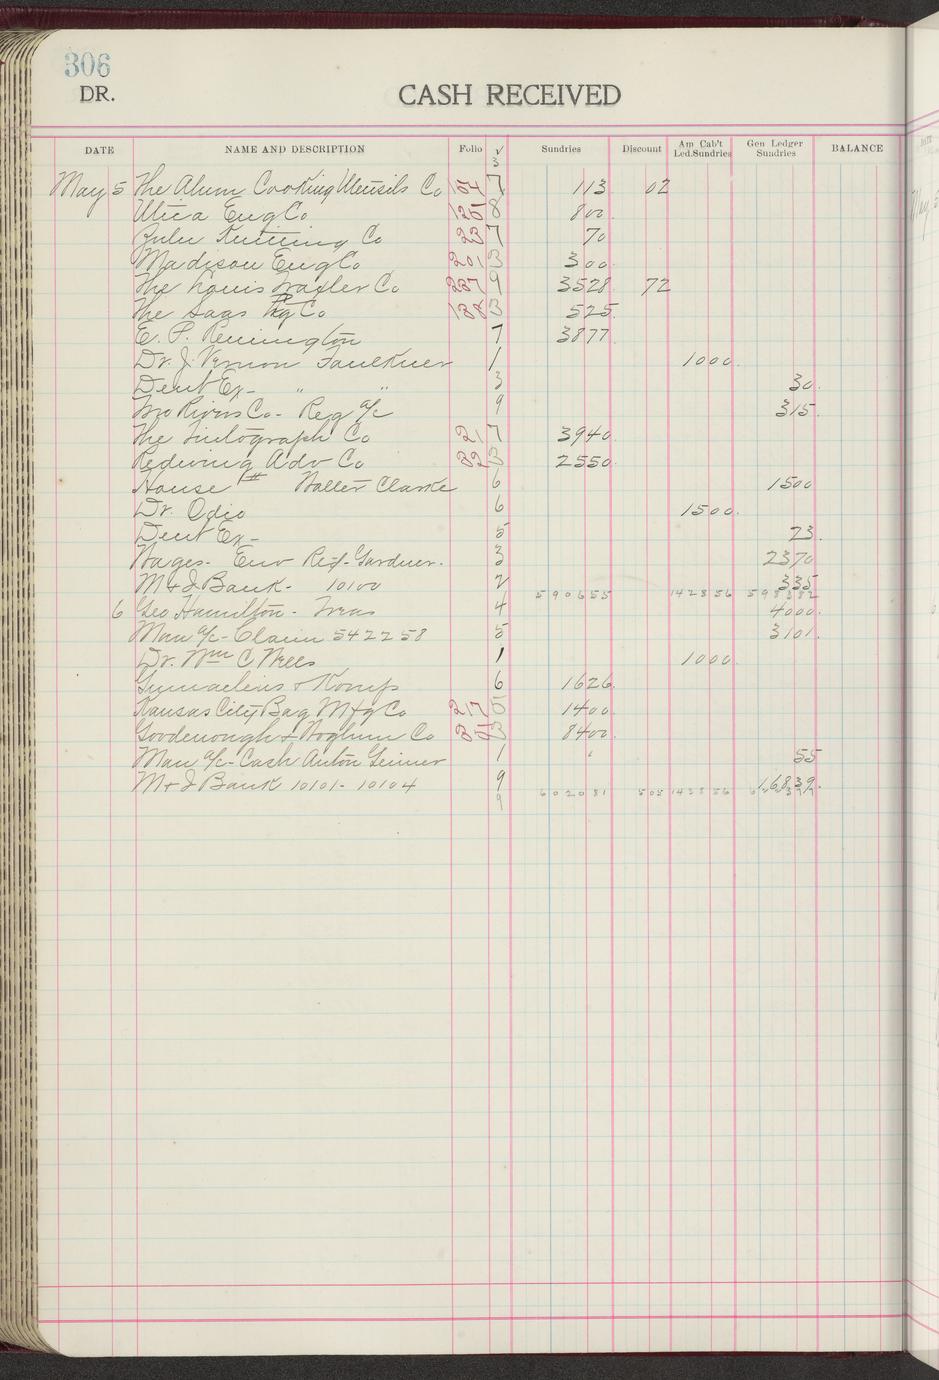 306
DR. CASH RECEIVED
DATE NAME AND DESCRIPTION Folio √ Sundries Discount Am Cab't Led.Sundries Gen Ledger Sundries BALANCE
3
May 5 The Alum Cooking Utensils Co 7 113 02
Utica Eng Co 8 800
Knitting Co 23 7 70
Madison Eng Co 201 3 300
The Louis Co 227 9 3528 72
The Saas Co 138 3 525
E. P. Remington 7 3877
Dr. J. Vernon Faulkner 1 1000
Dent Ex - " " 3 30
Two Rivers Co - Reg a/c 9 315
The Co 21 7 3940
Redwing Adv Co 32 3 2550
House Walter Clarke 6 1500
Dr. Odio 6 1500
Dent Ex - 5 23
Wages - Env Red - Gardner. 3 2370
M & I Bank - 10100 2 335
590655 142856 598382
6 Geo Hamilton - Treas 4 4000
Man a/c - Claim 542258 5 3101
Dr. Wm C Wells 1 1000
Gumaelius & Komp 6 1626
Kansas City Bag Mfg Co 217 5 1400
Goodenough & Woglum Co 3 8400
Man a/c - Cash Anton 1 55
M & I Bank 10101 - 10104 9 16839
9 602081 505 143856